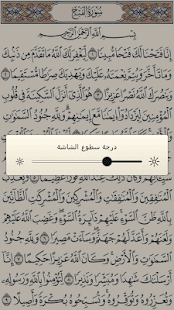 سُورَةُ الفَتْحِ
بِسْمِ اللَّهِ الرَّحْمَٰنِ الرَّحِيمِ
إِنَّا فَتَحْنَا لَكَ فَتْحًا مُّبِينًا ١ لِّيَغْفِرَ لَكَ اللَّهُ مَا تَقَدَّمَ مِن ذَنۢبِكَ
وَمَا تَأَخَّرَ وَيُتِمَّ نِعْمَتَهُۥ عَلَيْكَ وَيَهْدِيَكَ صِرَٰطًا مُّسْتَقِيمًا ٢
وَيَنصُرَكَ اللَّهُ نَصْرًا عَزِيزًا ٣ هُوَ الَّذِىٓ أَنزَلَ السَّكِينَةَ فِى قُلُوبِ
الْمُؤْمِنِينَ لِيَزْدَادُوٓا۟ إِيمَٰنًا مَّعَ إِيمَٰنِهِمْ وَلِلَّهِ جُنُودُ السَّمَٰوَٰتِ
درجة سطوع الشاشة
الْمُنَٰفِقِينَ وَالْمُنَٰفِقَٰتِ وَالْمُشْرِكِينَ وَالْمُشْرِكَٰتِ الظَّآنِّينَ
بِاللَّهِ ظَنَّ السَّوْءِ عَلَيْهِمْ دَآئِرَةُ السَّوْءِ وَغَضِبَ اللَّهُ
عَلَيْهِمْ وَلَعَنَهُمْ وَأَعَدَّ لَهُمْ جَهَنَّمَ وَسَآءَتْ مَصِيرًا ٦ وَلِلَّهِ
جُنُودُ السَّمَٰوَٰتِ وَالْأَرْضِ وَكَانَ اللَّهُ عَزِيزًا حَكِيمًا ٧ إِنَّآ
أَرْسَلْنَٰكَ شَٰهِدًا وَمُبَشِّرًا وَنَذِيرًا ٨ لِّتُؤْمِنُوا۟ بِاللَّهِ وَرَسُولِهِۦ
وَتُعَزِّرُوهُ وَتُوَقِّرُوهُ وَتُسَبِّحُوهُ بُكْرَةً وَأَصِيلًا ٩